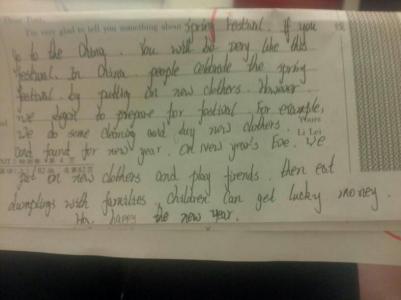 Dear Tom,
I'm very glad to tell you something about Spring Festival. If you
go to the China. You will be very like this
festival. In China people celebrate the spring
festival by putting on new clothers. However.
we begin to prepare for festival. For example,
we do some cleaning and buy new clothers.
Yours
Li Lei
and found for new year. On New year's Eve. We
put on new clothers and play firends. then eat
dumplings with families. children can get lucky money.
happy the new year.